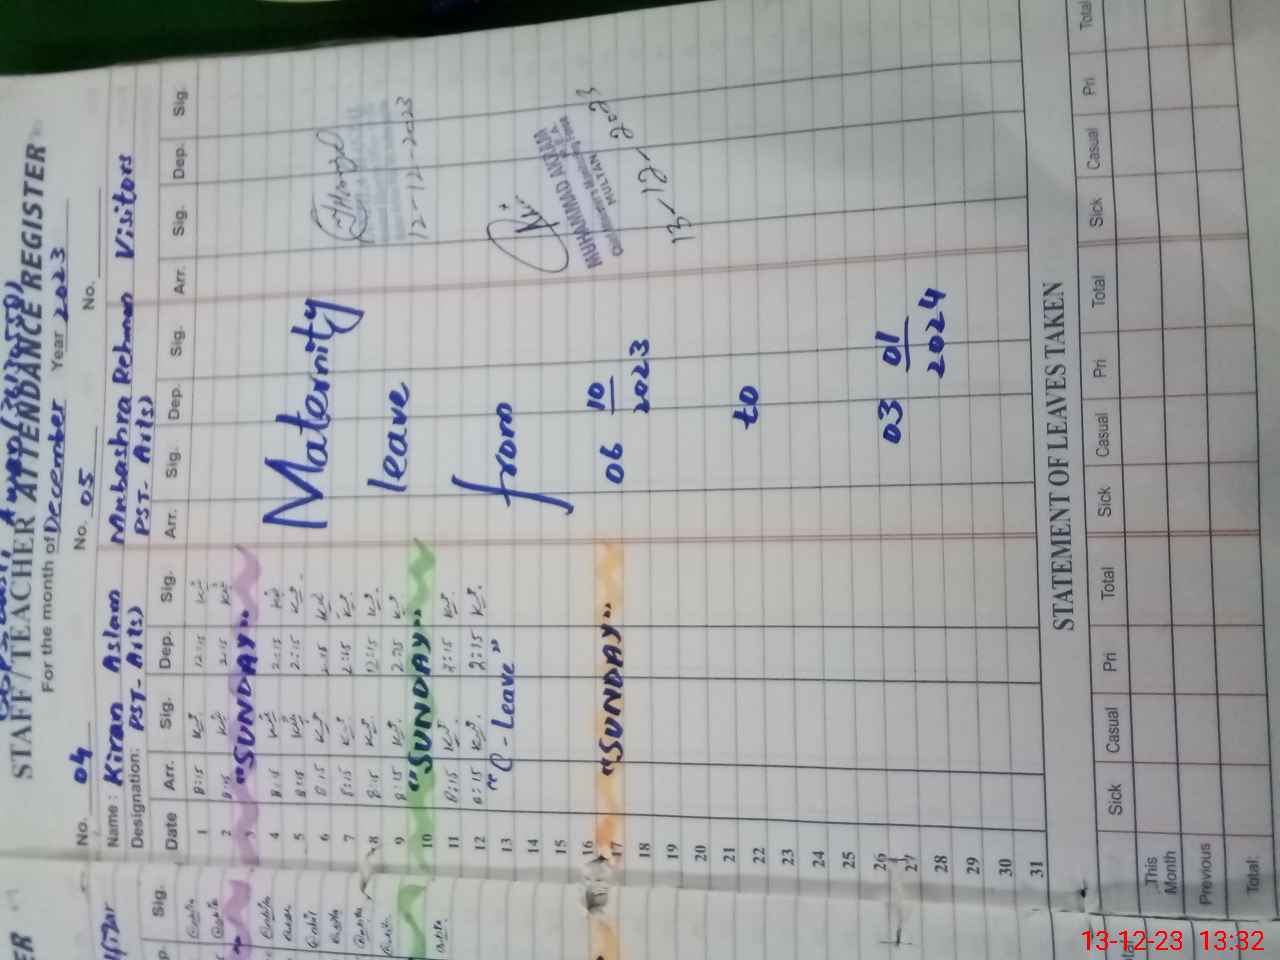 STAFF / TEACHER ATTENDANCE REGISTER
For the month of December Year 2023
No. 04 No. 05 No.
Name: Kiran Aslam Mubashra Rehman Visitors
Designation: PST- Arts) PST- Arts)
Date Arr. Sig. Dep. Sig. Arr. Sig. Dep. Sig. Arr. Sig. Dep. Sig.
1 8:15 12:15
2 8:15 2:15
3 "SUNDAY"
4 8:15 2:15
5 8:15 2:15
6 8:15 2:15
7 8:15 2:15
8 8:15 12:15
9 8:15 2:15
10 "SUNDAY"
11 8:15 2:15
12 8:15 2:15
13 "C-Leave"
14
15
16
17 "SUNDAY"
18
19
20
21
22
23
24
25
26
27
28
29
30
31
Maternity
leave
from
06 10
2023
to
03 01
2024
12-12-2023
MUHAMMAD AKRAM
MULTAN
13-12-2023
STATEMENT OF LEAVES TAKEN
Sick Casual Pri Total Sick Casual Pri Total Sick Casual Pri Total
This
Month
Previous
Total
Sig.
13-12-23 13:32